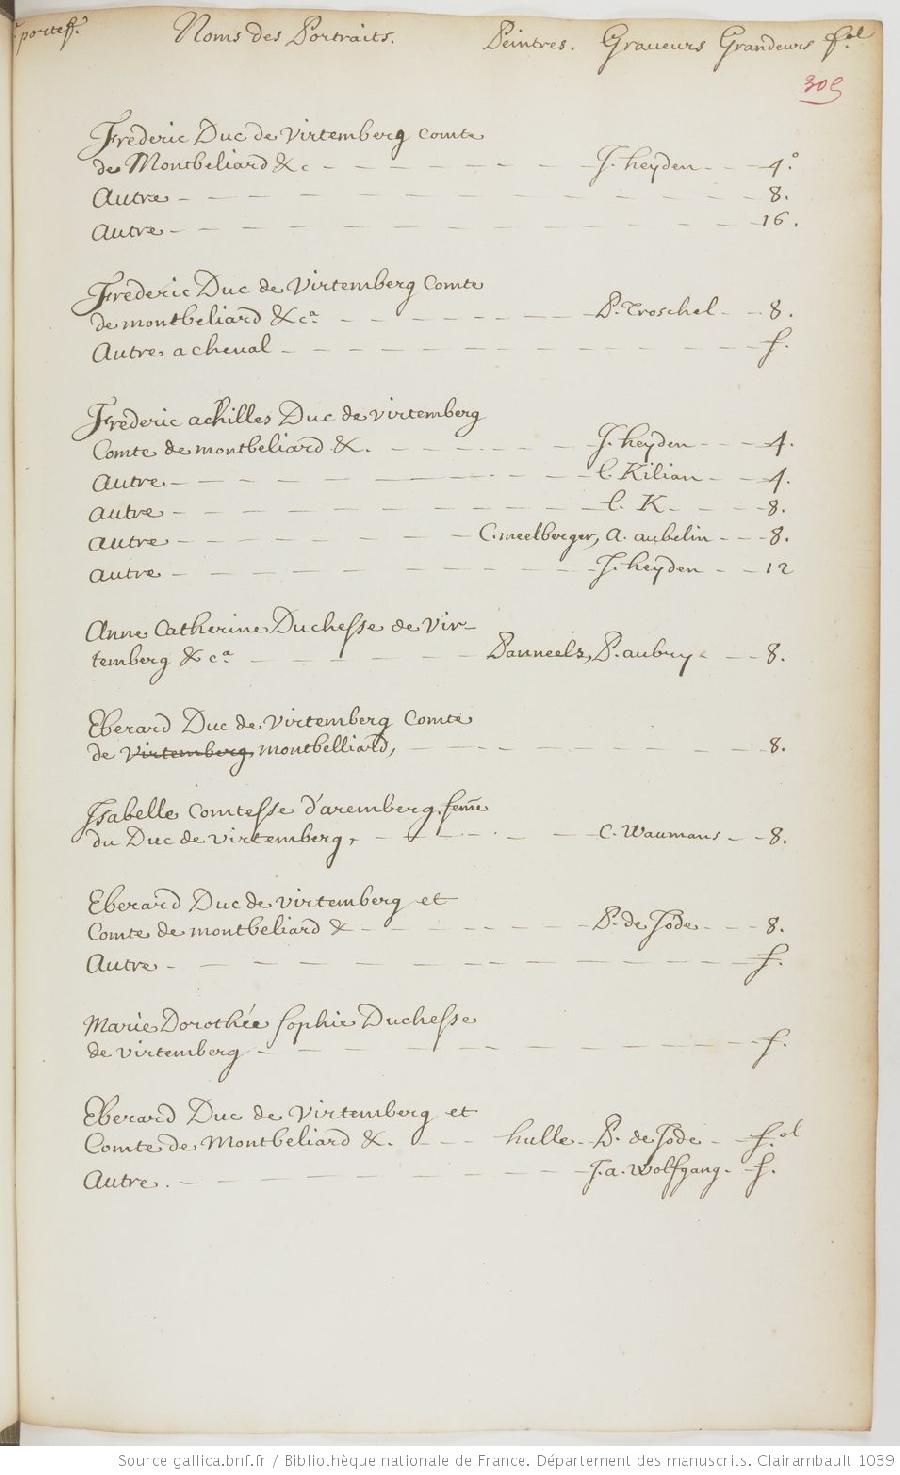 portef. Noms des Portraits. Peintres. Graveurs Grandeurs f.el
305
Fréderic Duc de Virtemberg comte
de Montbeliard &c - J. heyden - 4.°
Autre - 8.
Autre - 16.
Fréderic Duc de Virtemberg Comte
de montbeliard &c.a - P. Troschel - 8.
Autre, a cheval - f.
Fréderic achilles Duc de virtemberg
Comte de montbeliard &. - J. heyden - 4.
Autre - l. Kilian - 4.
Autre - l. K - 8.
Autre - C. meelberger, A. aubelin - 8.
Autre - J. heyden - 12
Anne Catherine Duchesse de Vir-
temberg &c.a - Panneels, P. aubry - 8.
Eberard Duc de Virtemberg Comte
de Virtemberg, montbelliard, - 8.
Isabelle Comtesse d'aremberg, femme
du Duc de virtemberg, - C. Waumans - 8.
Eberard Duc de virtemberg et
Comte de montbeliard & - P. de Jode - 8.
Autre - f.
Marie Dorothée Sophie Duchesse
de virtemberg - f.
Eberard Duc de Virtemberg et
Comte de Montbeliard &. - hulle - P. de Jode - f.el
Autre. - J. a. Wolfgang - f.
Source gallica.bnf.fr / Bibliothèque nationale de France. Département des manuscrits. Clairambault 1039